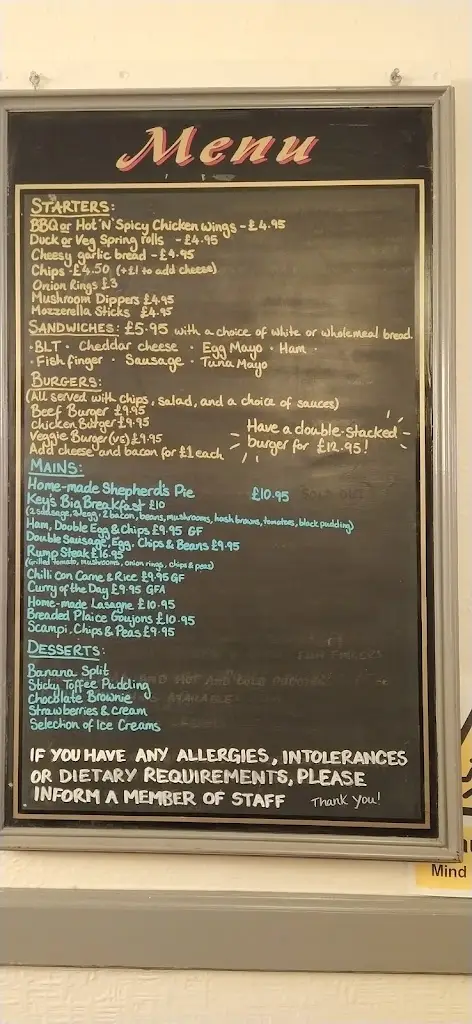 Menu
STARTERS:
BBQ or Hot 'N' Spicy Chicken Wings - £4.95
Duck or Veg Spring rolls - £4.95
Cheesy garlic bread - £4.95
Chips - £4.50 (+£1 to add cheese)
Onion Rings £3
Mushroom Dippers £4.95
Mozzerella Sticks £4.95
SANDWICHES: £5.95 with a choice of white or wholemeal bread.
· BLT · Cheddar cheese · Egg Mayo · Ham ·
· Fish finger · Sausage · Tuna Mayo
BURGERS:
(All served with chips, salad, and a choice of sauces)
Beef Burger £9.95
Chicken Burger £9.95
Veggie Burger (VE) £9.95
Add cheese and bacon for £1 each
Have a double-stacked
burger for £12.95!
MAINS:
Home-made Shepherd's Pie £10.95
Key's Big Breakfast £10
(2 sausage, 2 egg, 2 bacon, beans, mushrooms, hash browns, tomatoes, black pudding)
Ham, Double Egg & Chips £9.95 GF
Double Sausage, Egg, Chips & Beans £9.95
Rump Steak £16.95
(Grilled tomato, mushrooms, onion rings, chips & peas)
Chilli con Carne & Rice £9.95 GF
Curry of the Day £9.95 GFA
Home-made Lasagne £10.95
Breaded Plaice Goujons £10.95
Scampi, Chips & Peas £9.95
DESSERTS:
Banana Split
Sticky Toffee Pudding
Chocolate Brownie
Strawberries & Cream
Selection of Ice Creams
IF YOU HAVE ANY ALLERGIES, INTOLERANCES
OR DIETARY REQUIREMENTS, PLEASE
INFORM A MEMBER OF STAFF Thank you!
Mind